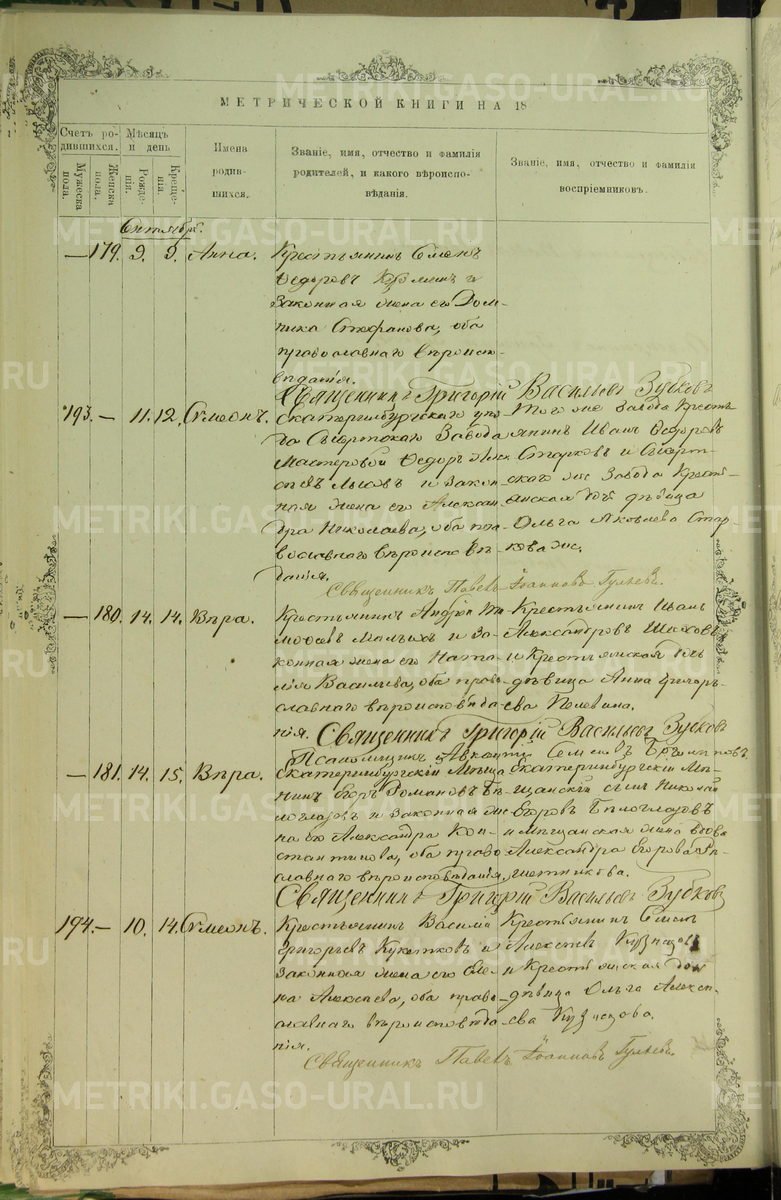 МЕТРИЧЕСКОЙ КНИГИ НА 18
Счетъ ро-
дившихся.
Мужеска пола.
Женска пола.
Мѣсяцъ
и день
Рожде-
нія.
Креще-
нія.
Имена
родив-
шихся.
Званіе, имя, отчество и фамилія
родителей, и какого вѣроиспо-
вѣданія.
Званіе, имя, отчество и фамилія
воспріемниковъ.
Сентябрь.
—179. 9. 9. Анна.
Крестьянинъ
Ѳедоровъ
законная жена его Дом-
ника Стефанова, оба
православнаго вѣроиспо-
вѣданія.
Священникъ Григорій Васильевъ Зубковъ
193.— 11. 12. Сѵмеонъ.
Екатеринбургскаго уѣз-
да Сысертскаго Завода
Мастеровой Ѳедоръ
и закон-
ная жена его Алексан-
дра Николаева, оба пра-
вославнаго вѣроисповѣ-
данія.
Того же Завода Кресть-
янинъ Иванъ Ѳедоровъ
Старковъ и Сысерт-
скаго же Завода Кресть-
янская дѣвица
Ольга Яковлева Стар-
кова
Священникъ Павелъ Іоанновъ Гуляевъ.
—180. 14. 14. Вѣра.
Крестьянинъ Андрей Ти-
моѳеевъ Малыхъ и за-
конная жена его Ната-
лія Васильева, оба право-
славнаго вѣроисповѣда-
нія.
Крестьянинъ Иванъ
Александровъ
и Крестьянская дочь
дѣвица Анна Григорь-
ева Пелевина.
Священникъ Григорій Васильевъ Зубковъ
Псаломщикъ
—181. 14. 15. Вѣра.
Екатеринбургскій Мѣща-
нинъ Егоръ Романовъ Бѣ-
логлазовъ и законная же-
на его Александра Кон-
стантинова, оба право-
славнаго вѣроисповѣданія.
Екатеринбургскій Мѣ-
щанскій сынъ Николай
Егоровъ Бѣлоглазовъ
и Мѣщанская жена вдова
Александра Егорова Рѣ-
шетникова.
Священникъ Григорій Васильевъ Зубковъ
194.— 10. 14. Сѵмеонъ.
Крестьянинъ Василій
Григорьевъ и
законная жена его Еле-
на Алексѣева, оба право-
славнаго вѣроисповѣда-
нія.
Крестьянинъ
Алексѣевъ Кузнецовъ
и Крестьянская дочь
дѣвица Ольга Алексѣ-
ева Кузнецова.
Священникъ Павелъ Іоанновъ Гуляевъ.
METRIKI.GASO-URAL.RU